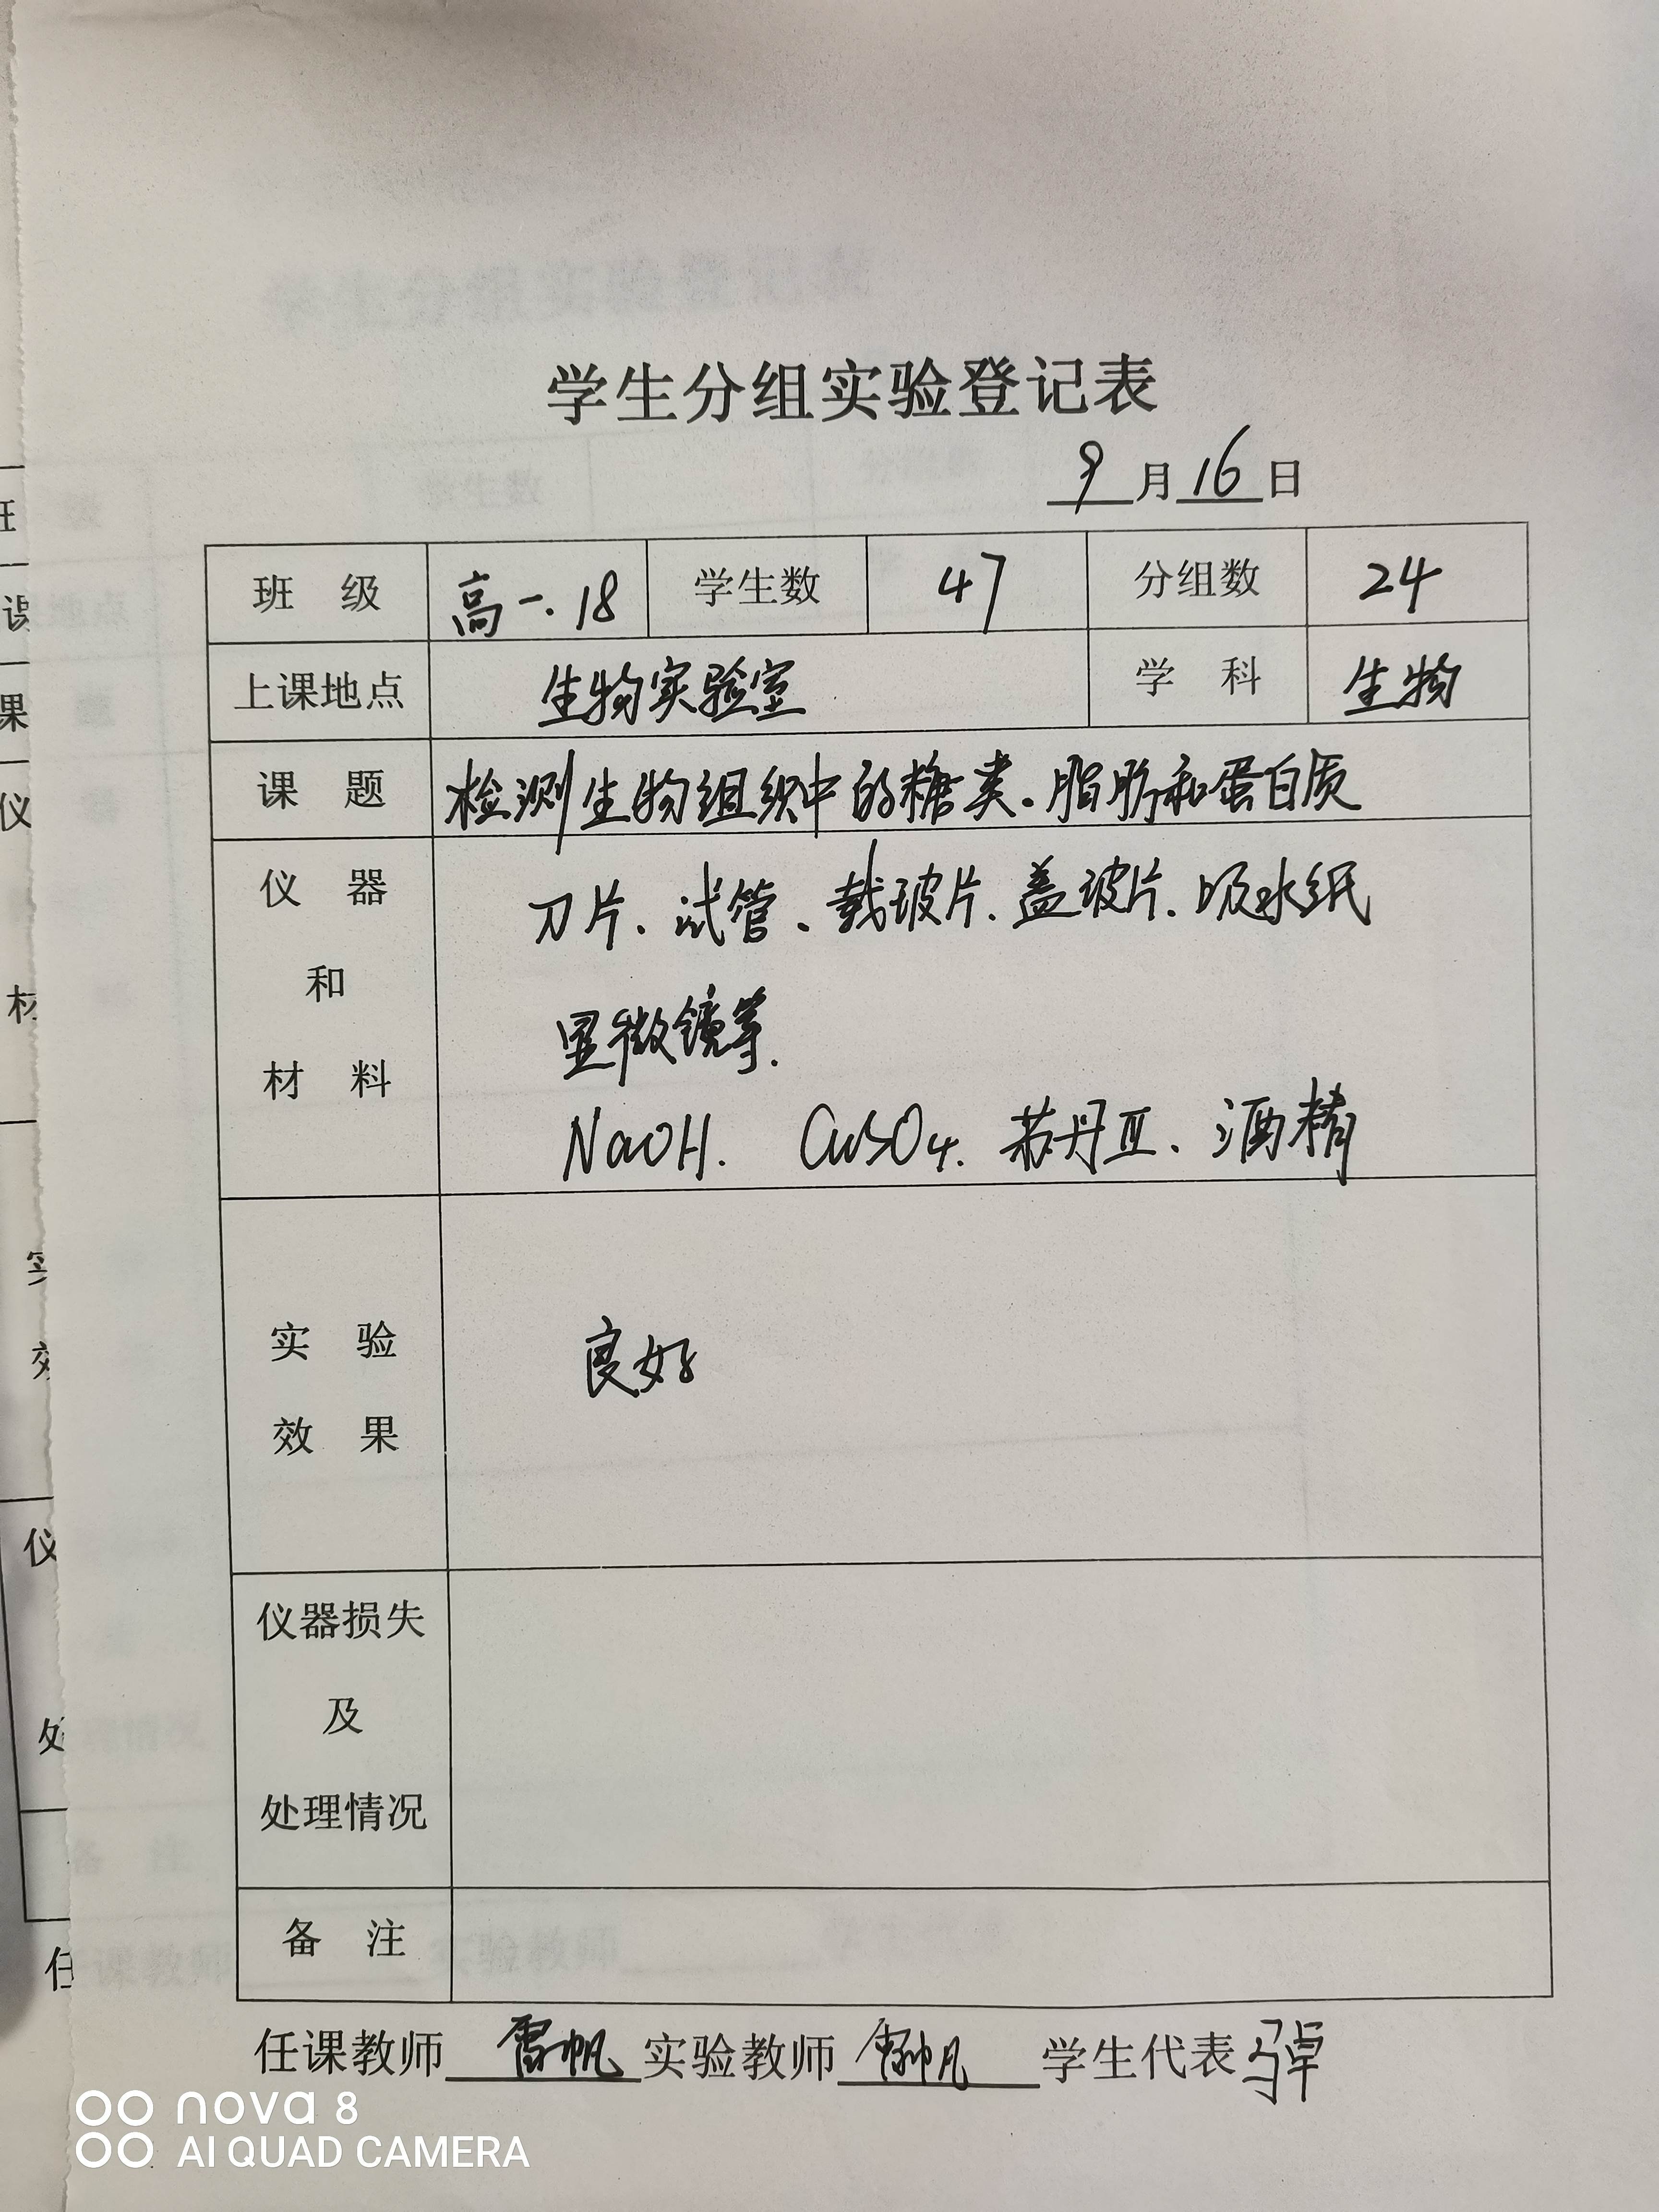 学生分组实验登记表
9月16日
班 级 高一.18 学生数 47 分组数 24
上课地点 生物实验室 学 科 生物
课 题 检测生物组织中的糖类.脂肪和蛋白质
仪 器 刀片、试管、载玻片、盖玻片、吸水纸
和 显微镜等.
材 料 NaOH. CuSO4. 苏丹Ⅲ、酒精
实 验
良好
效 果
仪器损失
及
处理情况
备 注
任课教师 雷帆 实验教师 雷帆 学生代表
nova 8
AI QUAD CAMERA